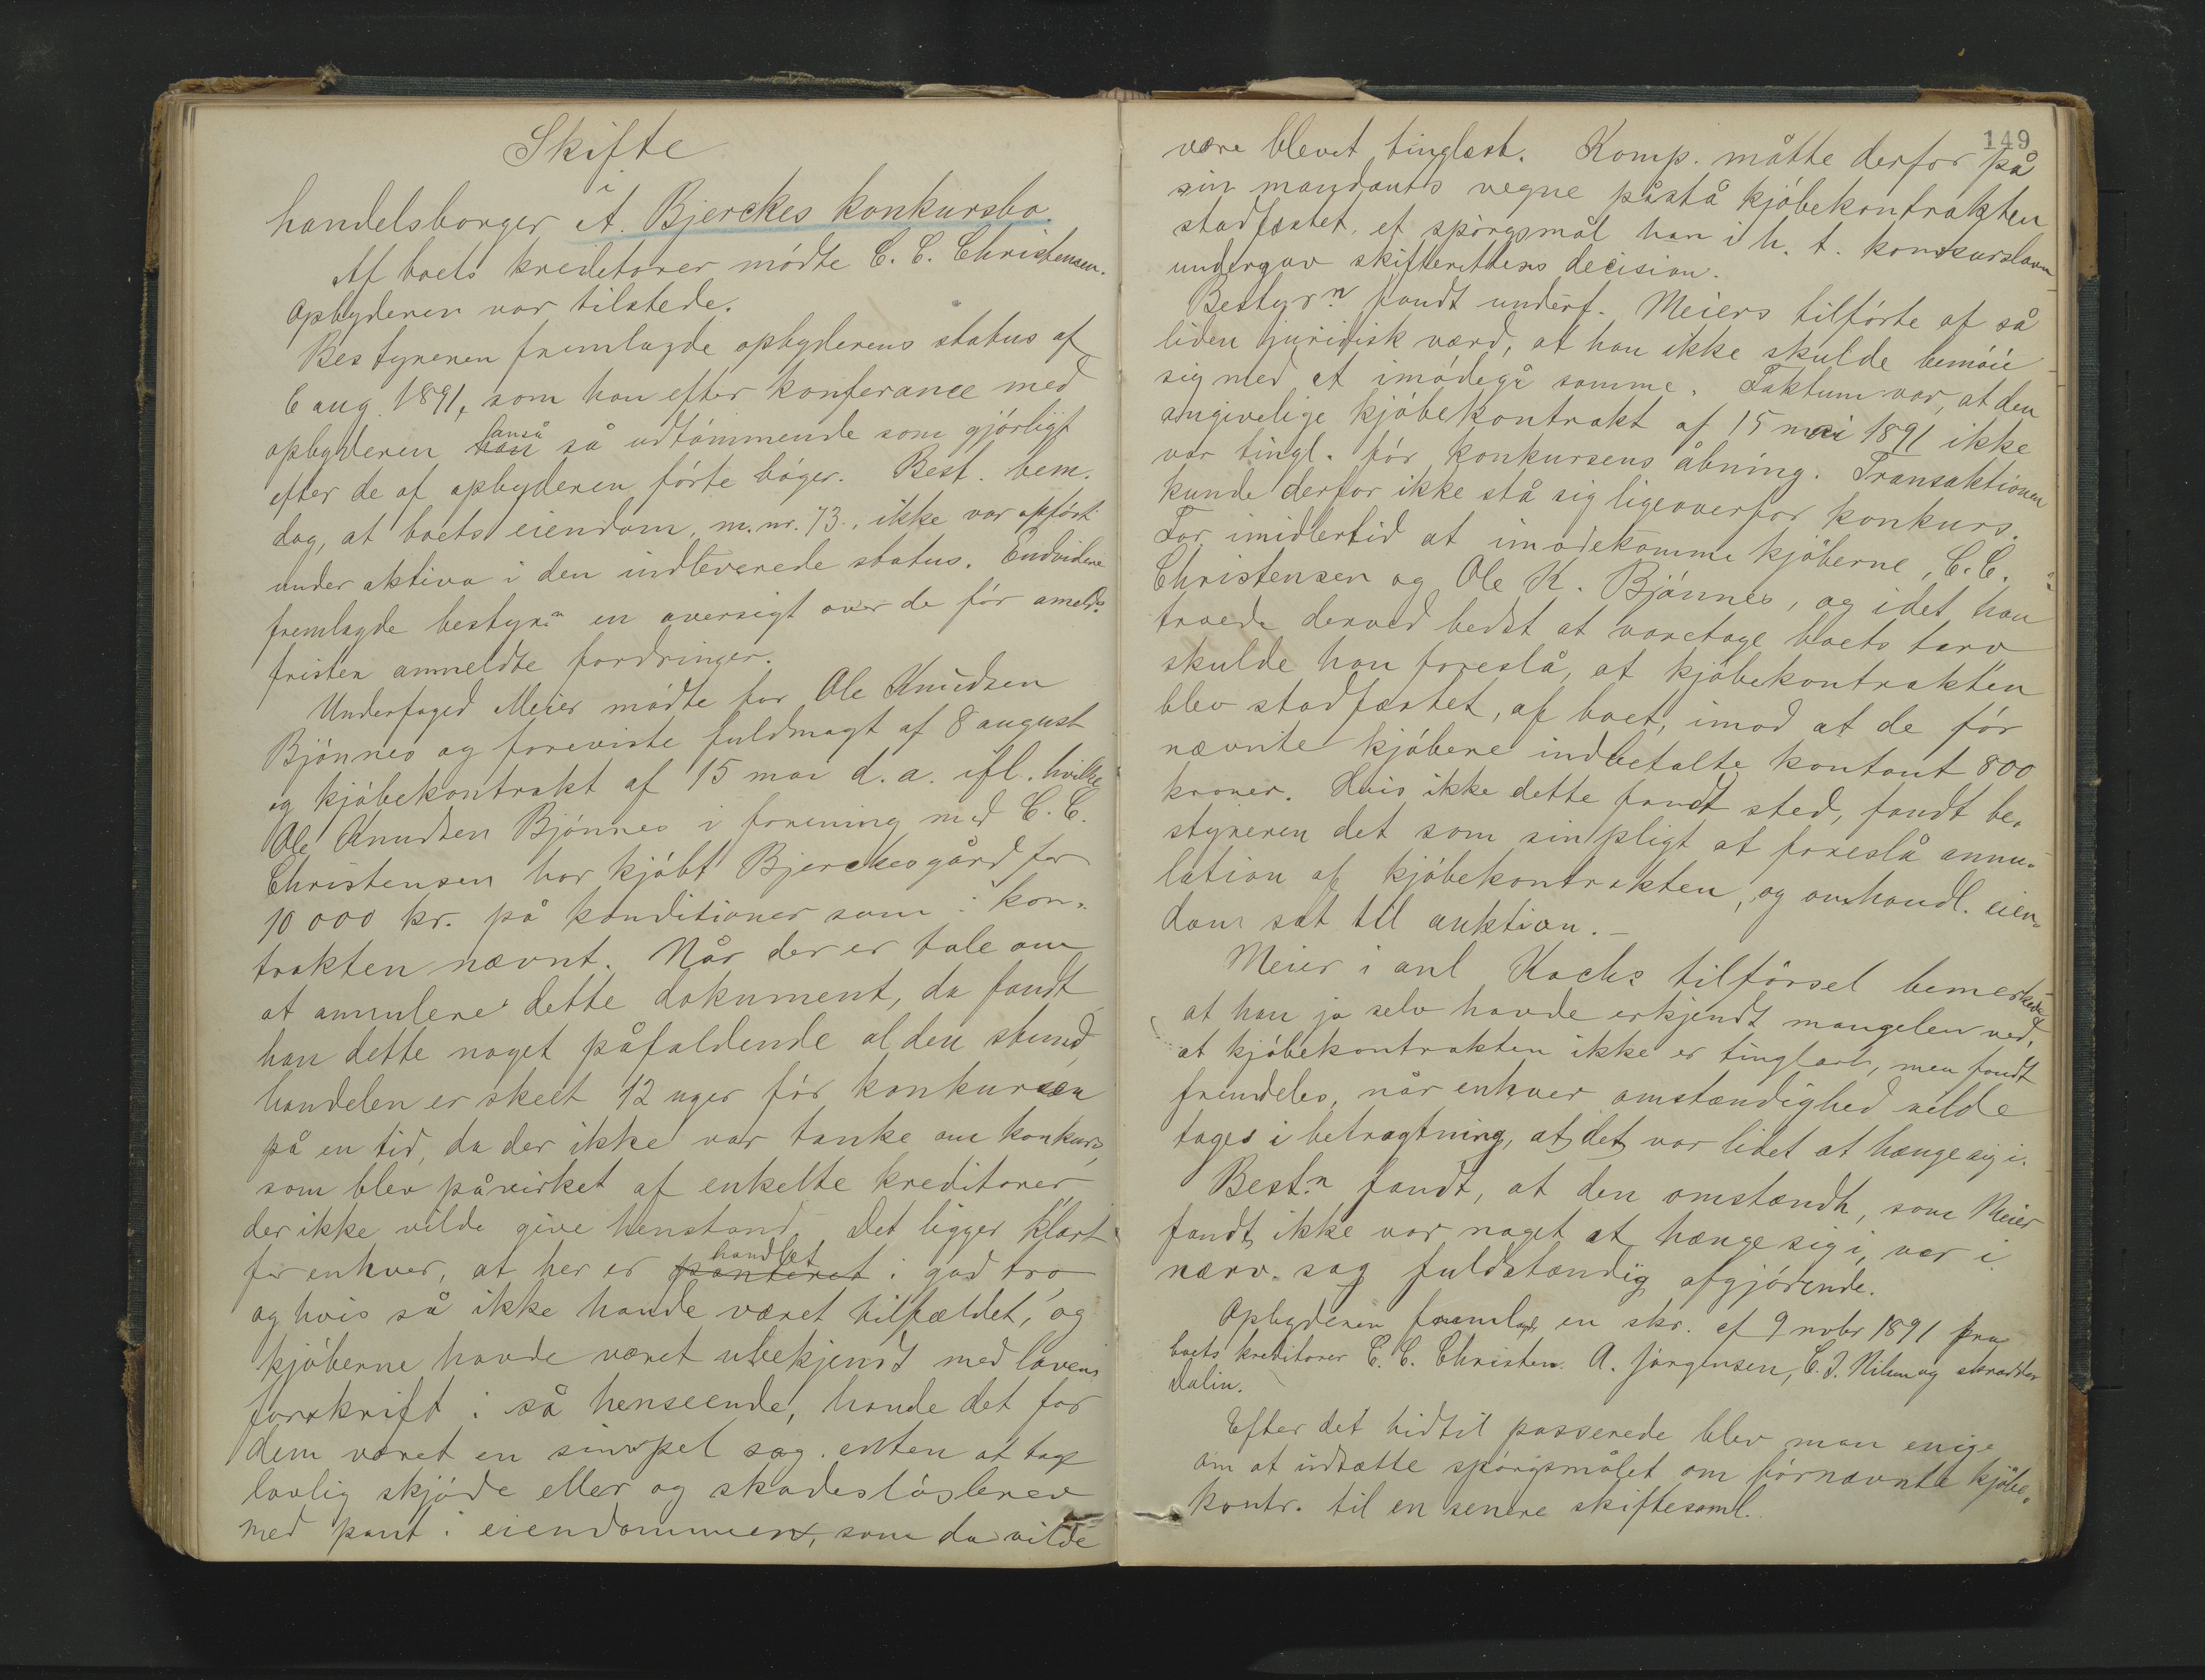 Skifte
i
handelsborger A. Bjerckes konkursbo.
Af boets kreditorer mødte C. C. Christensen.
Opbyderen var tilstede.
Bestyreren fremlagde opbyderens status af
6 aug. 1891, som han efter konferance med
opbyderen anså så udtømmende som gjørligt
efter de af opbyderen førte bøger. Best. bem.
dog, at boets eiendom, m. nr. 73, ikke var opført
under aktiva i den indleverede status. Endvidere
fremlagde bestyrn en oversigt over de før amelds
fristen anmeldte fordringer.
Underfoged Meier mødte for Ole Knudsen
Bjønnes og foreviste fuldmagt af 8 august
og kjøbekontrakt af 15 mai d. a. ifl. hvilke
Ole Knudsen Bjønnes i forening med C. C.
Christensen har kjøbt Bjerckesgård for
10 000 kr. på konditioner som i kon-
trakten nævnt. Når der er tale om
at annulere dette dokument, da fandt
han dette noget påfaldende al den stund
handelen er skeet 12 uger før konkursen
på en tid, da der ikke var tanke om konkurs,
som blev påvirket af enkelte kreditorer
der ikke vilde give henstand. Det ligger klart
for enhver, at her er panteret handlet i god tro
og hvis så ikke havde været tilfældet, og
kjøberne havde været ubekjendt med lovens
forskrift i så henseende, havde det for
dem været en simpel sag enten at tage
lovlig skjøde eller og skadesløsbrev
med pant i eiendommen, som da vilde
149
være blevet tinglæst. Komp. måtte derfor på
sin mandants vegne påstå kjøbekontrakten
stadfæstet, et spørgsmål han i h. t. konkursloven
undergav skifterettens decision.
Bestyrn fandt underf. Meiers tilførte af så
liden juridisk værd, at han ikke skulde bemøie
sig med at imødegå samme. Faktum var, at den
angivelige kjøbekontrakt af 15 mai 1891 ikke
var tingl. før konkursens åbning. Transaktionen
kunde derfor ikke stå sig ligeoverfor konkurs.
For imidlertid at imødekomme kjøberne, C. C.
Christensen og Ole K. Bjønnes, og idet han
troede derved bedst at varetage boets tarv
skulde han foreslå, at kjøbekontrakten
blev stadfæstet, af boet, imod at de før
nævnte kjøbere indbetalte kontant 800
kroner. Hvis ikke dette fandt sted, fandt be-
styreren det som sin pligt at foreslå annu-
lation af kjøbekontrakten, og omhandl. eien-
dom sat til auktion.-
Meier i anl Kochs tilførsel bemerkede,
at han jo selv havde erkjendt mangelen ved,
at kjøbekontrakten ikke er tinglæst, men fandt
fremdeles, når enhver omstændighed vilde
tages i betragtning, at det var lidet at hænge sig i.
Best.n fandt, at den omstændh, som Meier
fandt ikke var noget at hænge sig i, var i
nærv. sag fuldstændig afgjørende.
Opbyderen fremlagde en skr. af 9 novbr 1891 fra
boets kreditorer C. C. Christen. A. Jørgensen, C. J. Nilsen og skrædder
Dalin.
Efter det hidtil passerede blev man enige
om at udsætte spørgsmålet om førnævnte kjøbe-
kontr. til en senere skiftesaml.